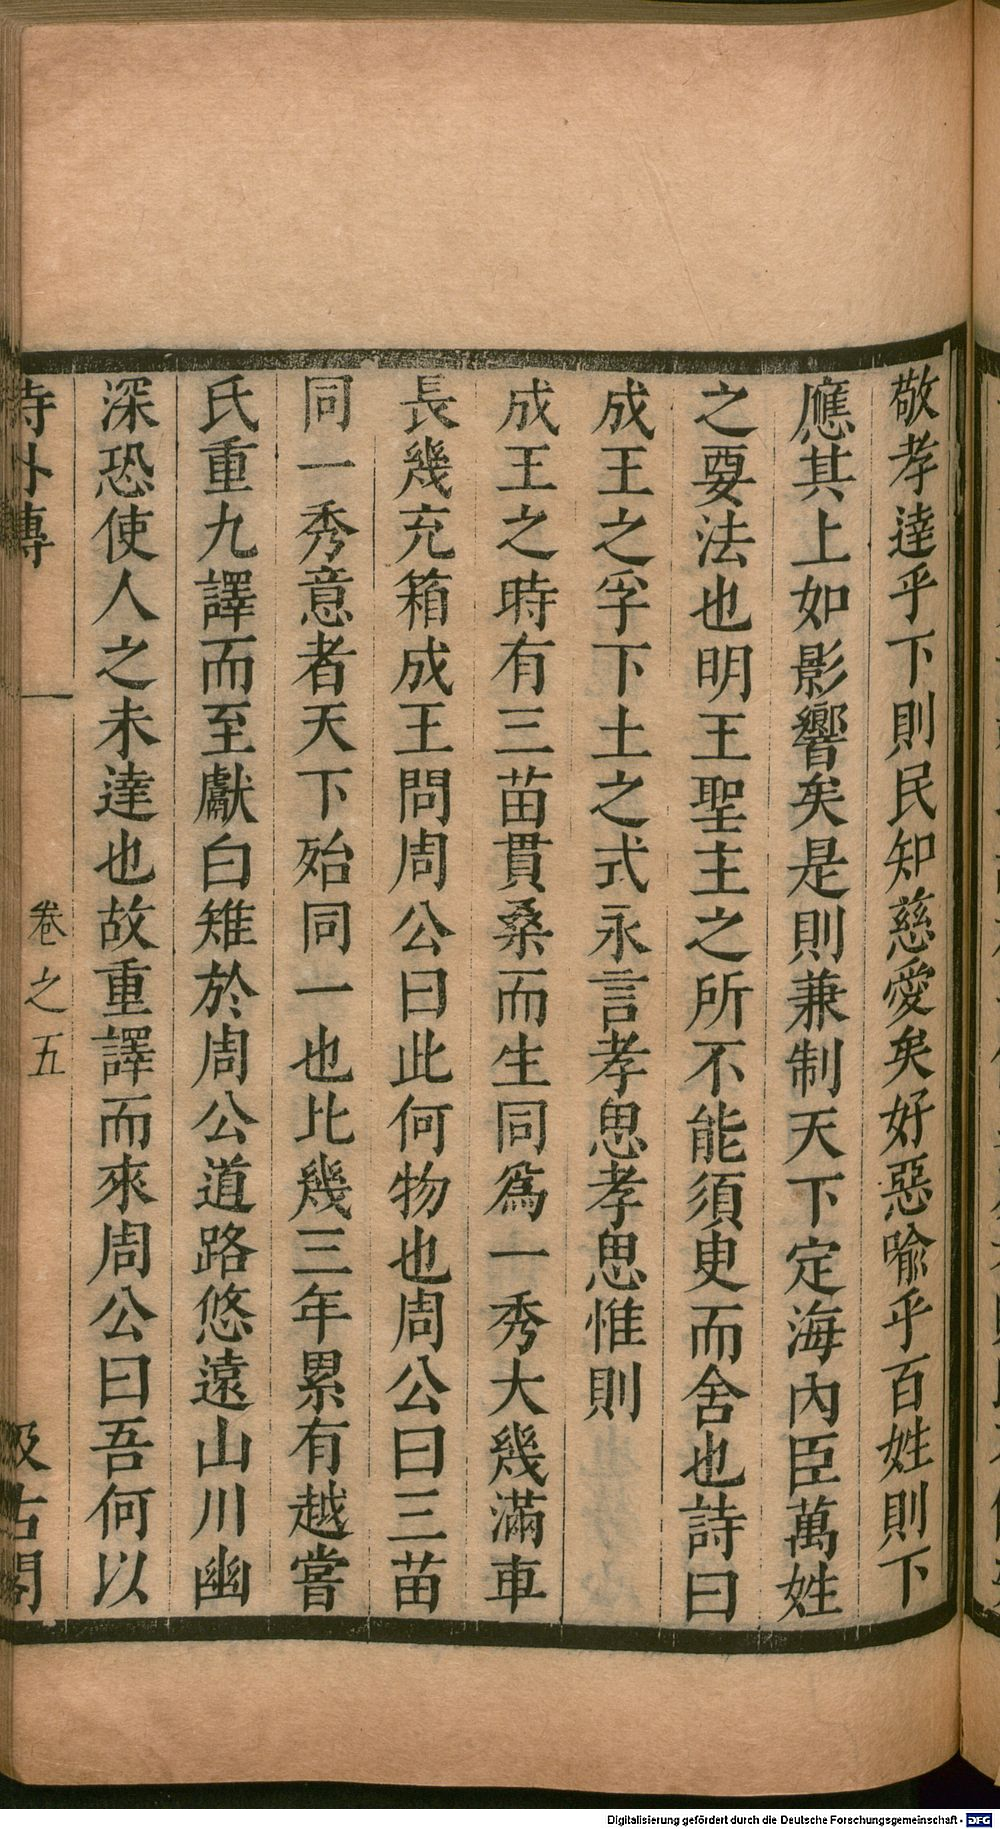 敬孝達乎下則民知慈愛矣好惡喻乎百姓則下
應其上如影響矣是則兼制天下定海內臣萬姓
之要法也明王聖主之所不能須臾而舍也詩曰
成王之孚下土之式永言孝思孝思惟則
成王之時有三苗貫桑而生同爲一秀大幾滿車
長幾充箱成王問周公曰此何物也周公曰三苗
同一秀意者天下殆同一也比幾三年累有越嘗
氏重九譯而至獻白雉於周公道路悠遠山川幽
深恐使人之未達也故重譯而來周公曰吾何以
詩外傳 卷之五 汲古閣
Digitalisierung gefördert durch die Deutsche Forschungsgemeinschaft - DFG